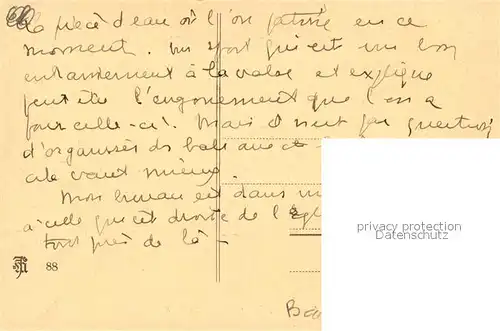 la pièce d'eau où l'on patine en ce
moment. un sport qui est un bon
entrainement à la valse et explique
peut être l'engouement que l'on a
pour celle-ci. Mais il n'est pas question
d'organiser des bals avec
cela vaut mieux.
Mon bureau est dans un
à celle qui est droite de l'égl
tout près de là -
privacy protection
Datenschutz
88